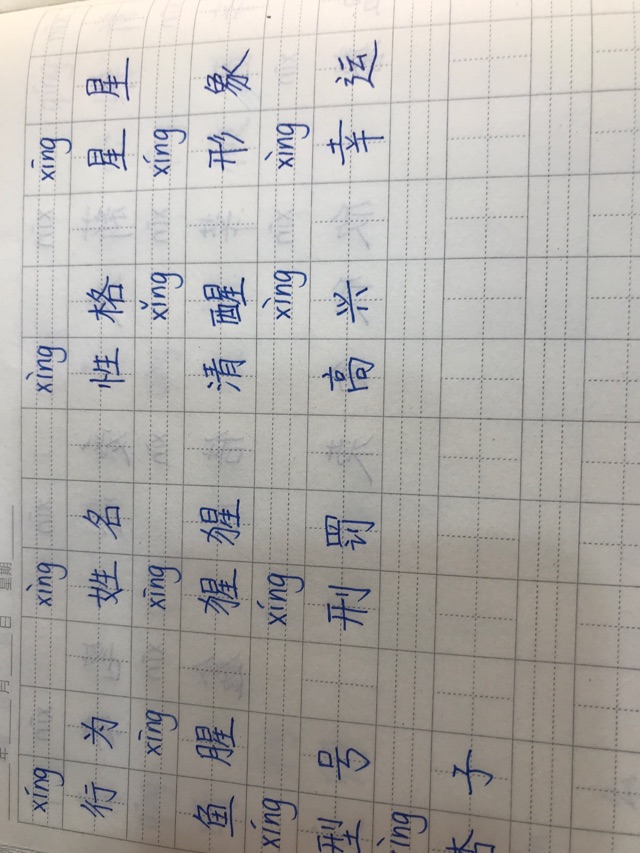 年 月 日 星期
xíng xìng xìng xīng
行为 姓名 性格 星星
xīng xīng xǐng xíng
鱼腥 猩猩 清醒 形象
xíng xíng xìng xìng
型号 刑罚 高兴 幸运
ìng
杏子